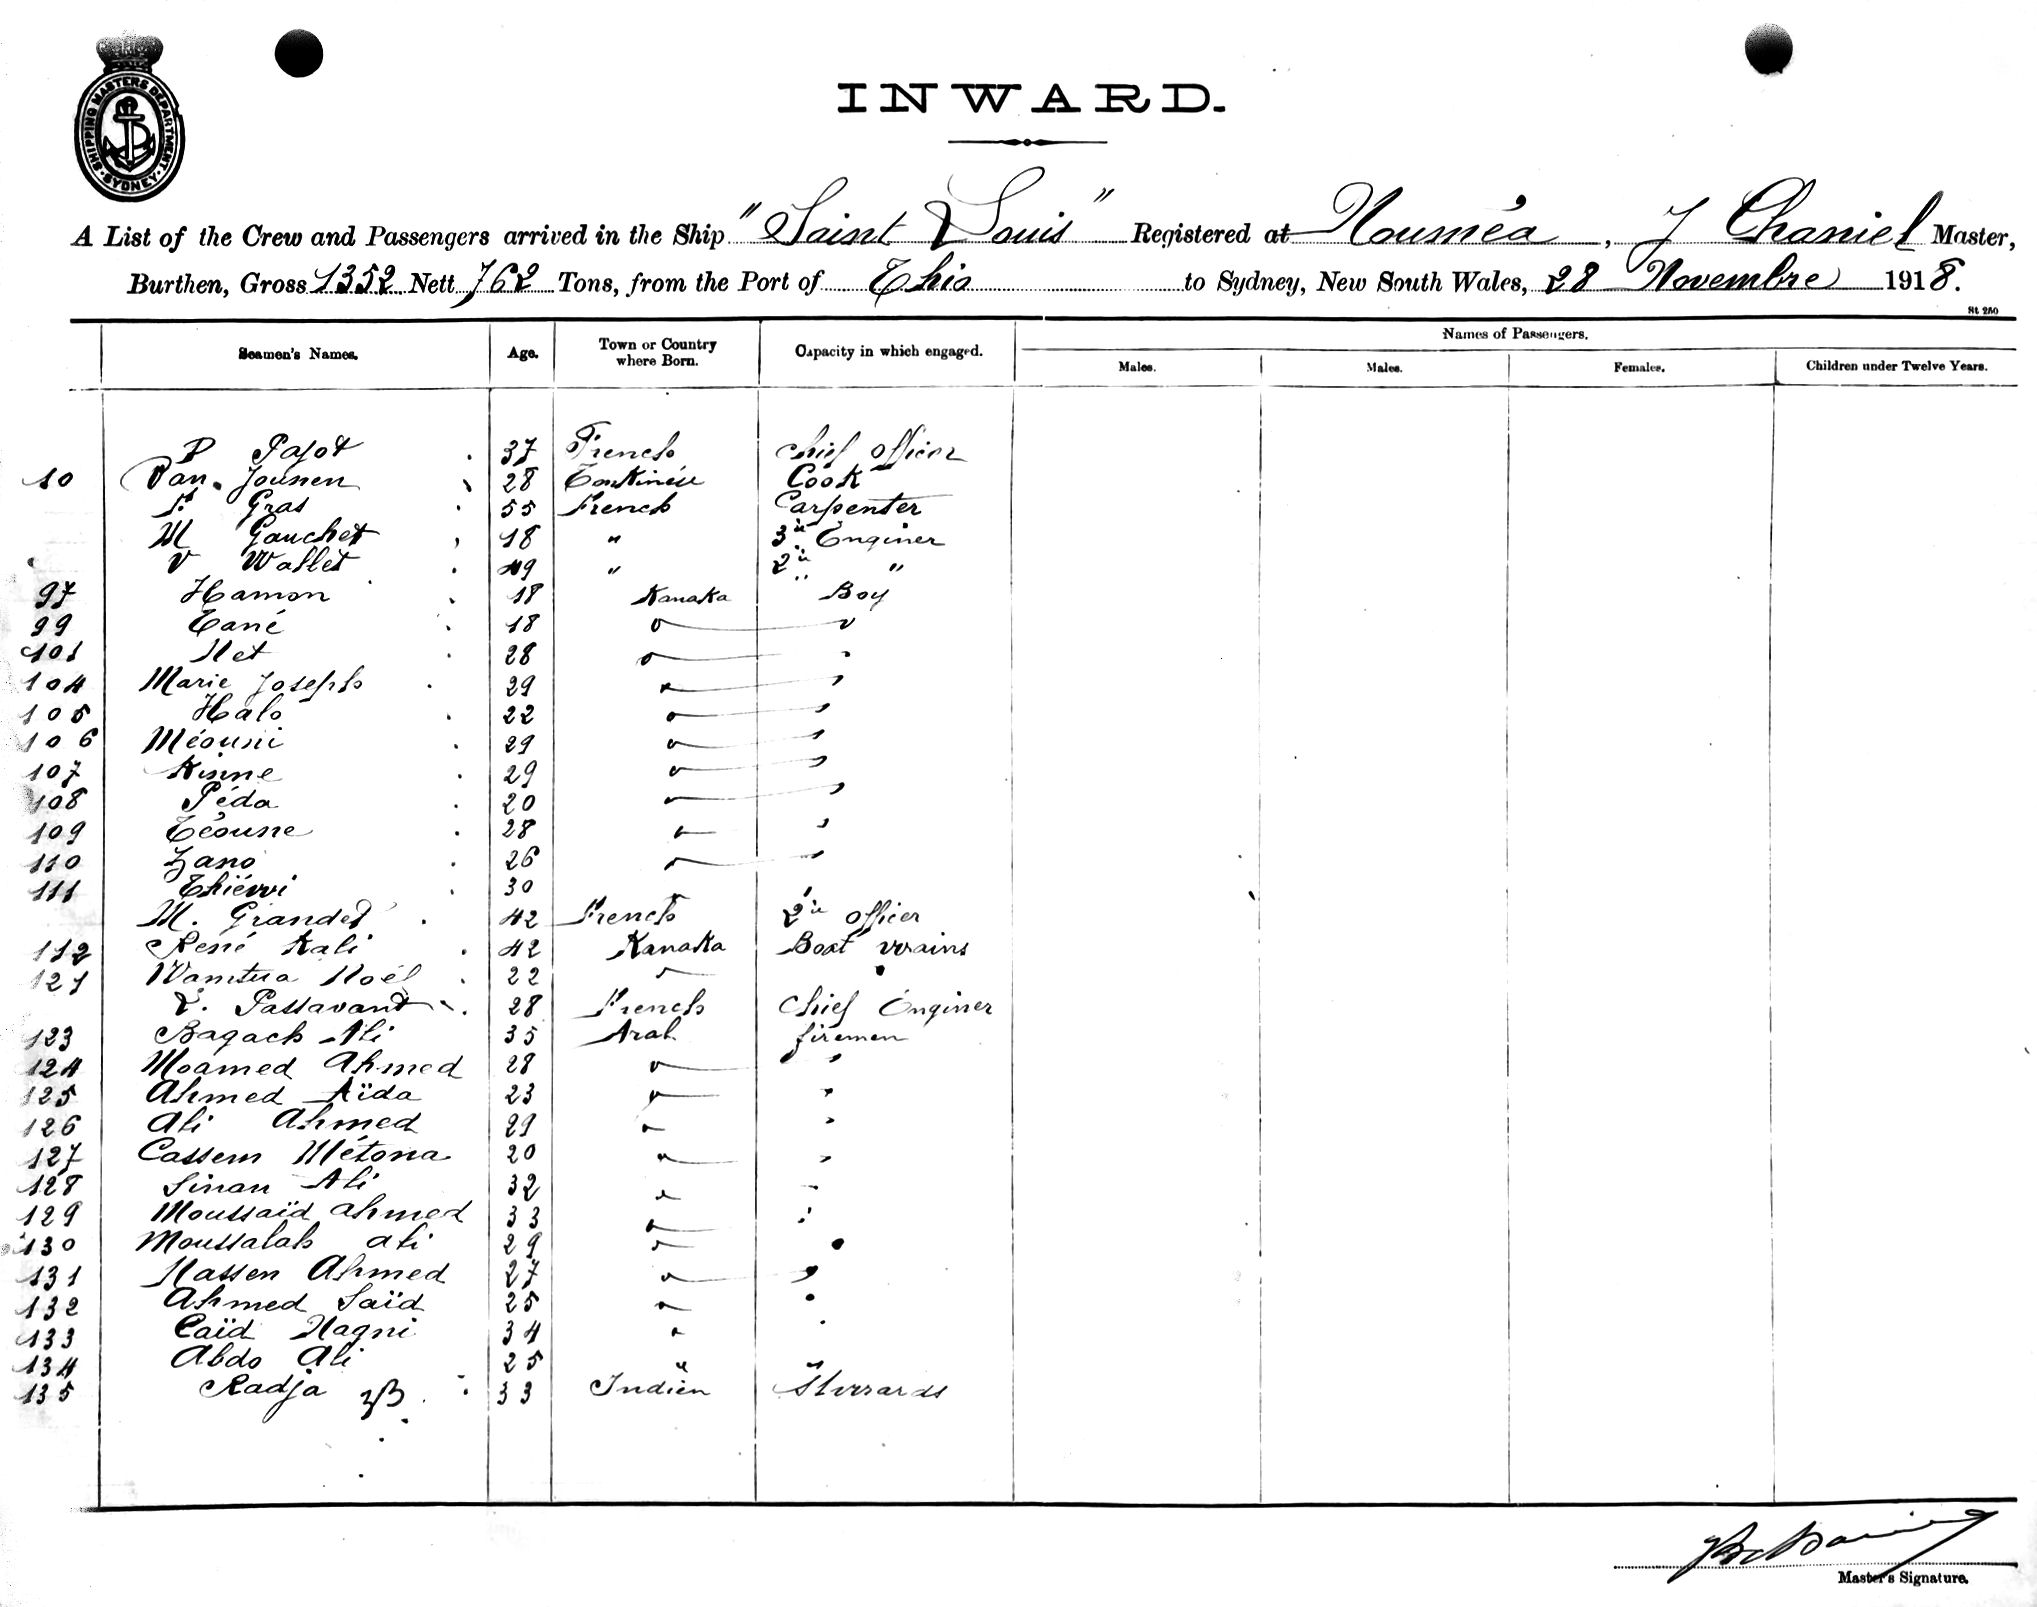 SHIPPING MASTERS DEPARTMENT
SYDNEY
INWARD.
A List of the Crew and Passengers arrived in the Ship "Saint Louis" Registered at Nouméa, J Chaniel Master,
Burthen, Gross 1352 Nett 762 Tons, from the Port of Thio to Sydney, New South Wales, 28 Novembre 1918.
St 250
Seamen's Names. Age. Town or Country where Born. Capacity in which engaged. Names of Passengers.
Males. Males. Females. Children under Twelve Years.
P Pajot 37 French chief officer
10 Van. Jounen 28 Tonkinése Cook
Gras 55 French Carpenter
M Gauchet 18 " 3d Enginer
V Wallet 49 " 2d "
97 Hamon 18 Kanaka Boy
99 Tané 18
101 Net 28
104 Marie Joseph 29
105 Halo 22
106 Méouni 29
107 Kinne 29
108 Péda 20
109 Téoune 28
110 Zano 26
111 Thiérri 30
M. Grandet 42 French 2d officer
112 René Kali 42 Kanaka Boat wains
121 Wamtua Noél 22
L. Passavant 28 French Chief Enginer
123 Bagach Ali 35 Arab firemen
124 Moamed Ahmed 28
125 Ahmed Aïda 23
126 Ali Ahmed 29
127 Cassem Métona 20
128 Sinan Ali 32
129 Moussaïd Ahmed 33
130 Moussalah Ali 29
131 Nassen Ahmed 27
132 Ahmed Saïd 25
133 Caïd Nagni 34
134 Abdo Ali 25 " "
135 Radja 33 Indien Stwards
Master's Signature.